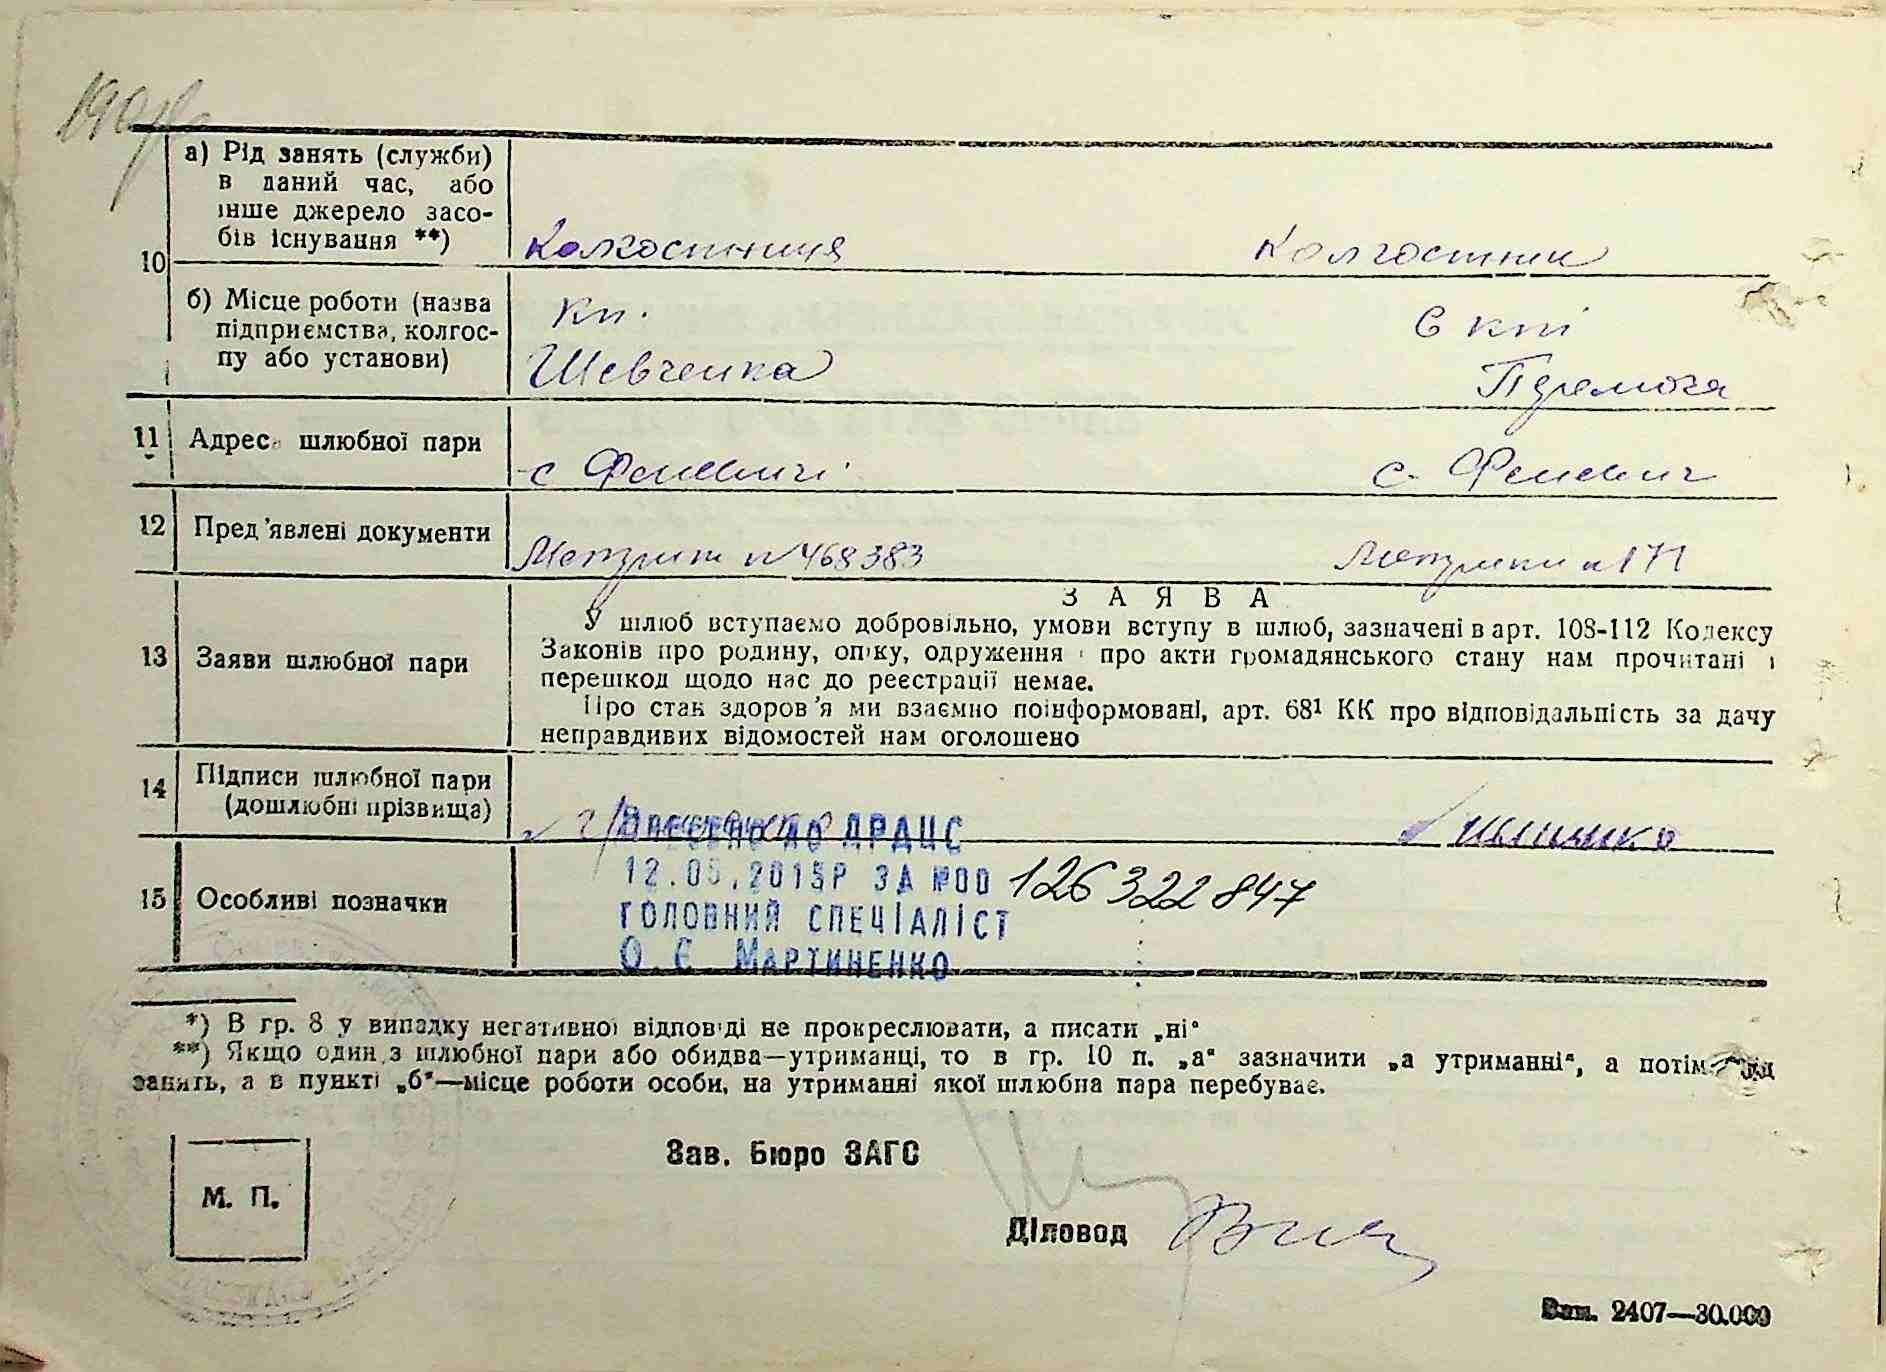 10
а) Рід занять (служби)
в даний час, або
інше джерело засо-
бів існування **)
Колгоспниця
Колгоспник
б) Місце роботи (назва
підприємства, колгос-
пу або установи)
Кп.
Шевченка
Є кпі
Перемога
11 Адреса шлюбної пари
с Феневичі
с. Феневич
12 Пред'явлені документи
Метрики № 468383
Метрики № 171
З А Я В А
13 Заяви шлюбної пари
У шлюб вступаємо добровільно, умови вступу в шлюб, зазначені в арт. 108-112 Кодексу
Законів про родину, опіку, одруження і про акти громадянського стану нам прочитані і
перешкод щодо нас до реєстрації немає.
Про стан здоров'я ми взаємно поінформовані, арт. 68¹ КК про відповідальність за дачу
неправдивих відомостей нам оголошено
14 Підписи шлюбної пари
(дошлюбні прізвища)
Внесено до ДРАЦС
12.05.2015р за №00 126322847
15 Особливі позначки
головний спеціаліст
О Є Мартиненко
*) В гр. 8 у випадку негативної відповіді не прокреслювати, а писати „ні“
**) Якщо один з шлюбної пари або обидва—утриманці, то в гр. 10 п. „а“ зазначити „а утриманні“, а потім рід
занять, а в пункті „б“—місце роботи особи, на утриманні якої шлюбна пара перебуває.
Зав. Бюро ЗАГС
М. П.
Діловод
Зам. 2407—30.000